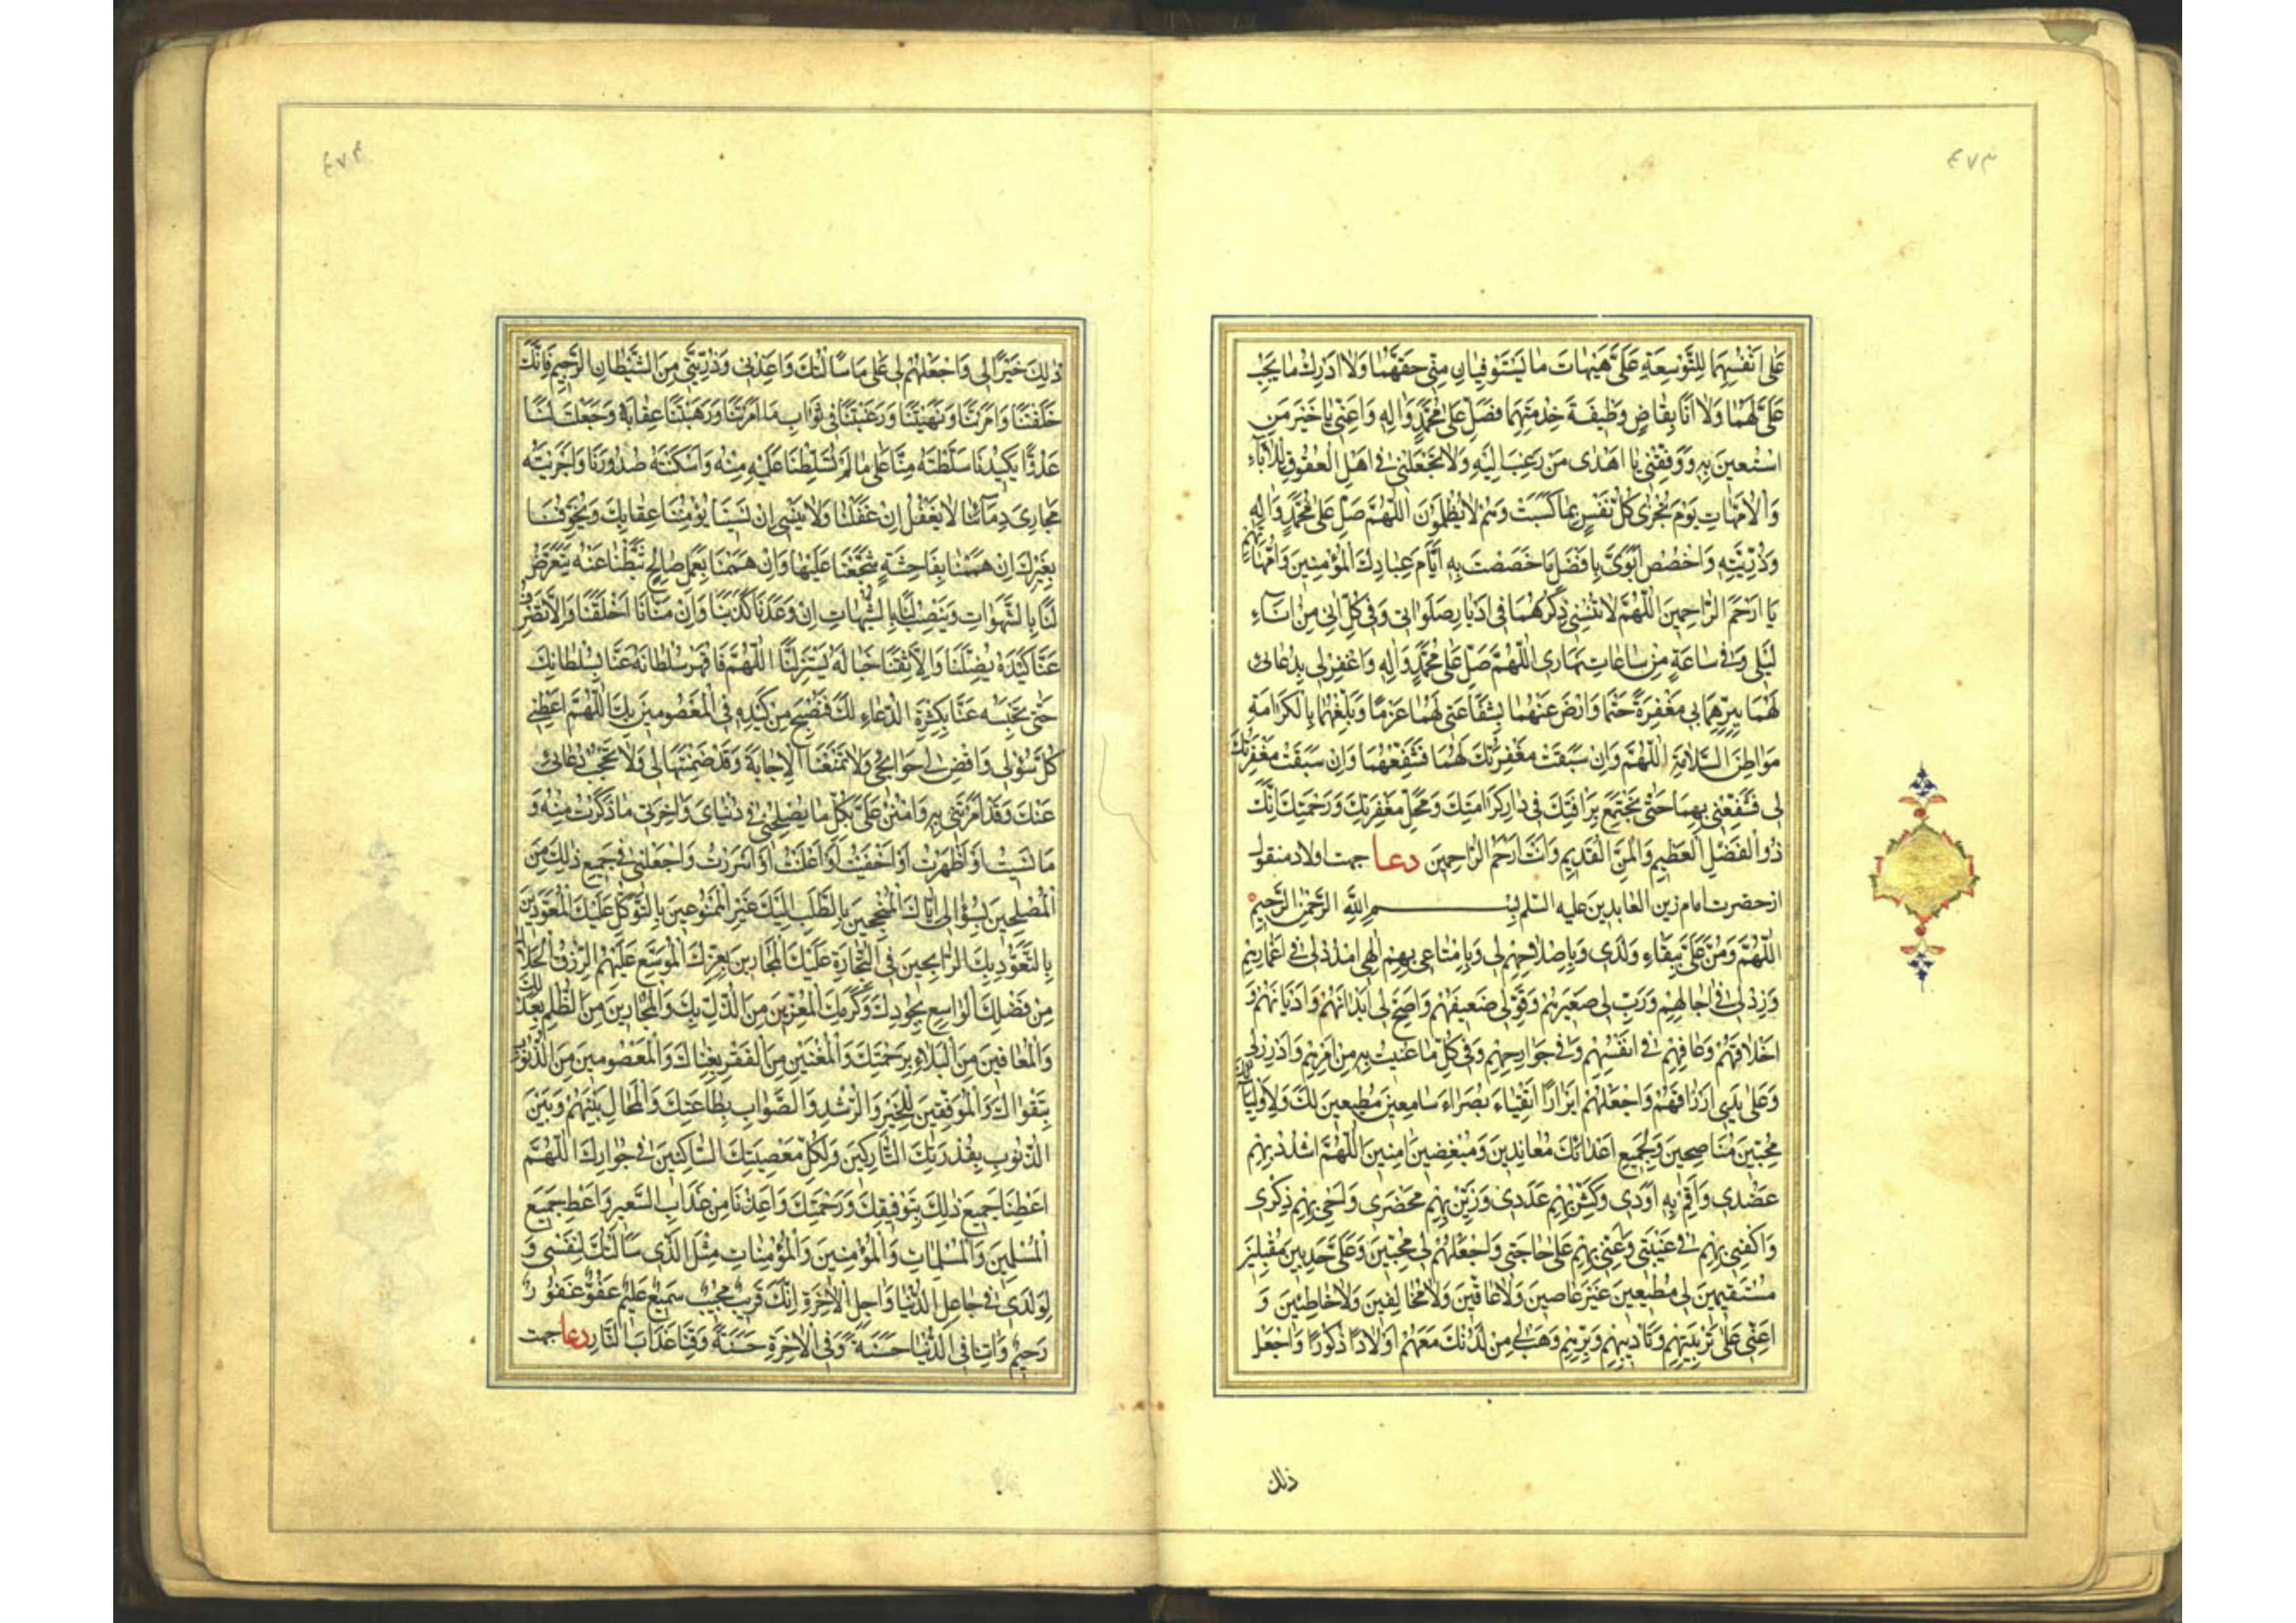 ٤٧٣
عَلىٰ اَنْفُسِهِمَا لِلتَّوْسِعَةِ عَلَيَّ هَيْهَاتَ مٰا يَسْتَوْفِيٰانِ مِنّي حَقَّهُمٰا وَلاٰ اُدْرِكُ مٰا يَجِبُ
عَلَيَّ لَهُمٰا وَلاٰ اَنَا بِقٰاضٍ وَظيفَةَ خِدْمَتِهِمٰا فَصَلِّ عَلىٰ مُحَمَّدٍ وَاٰلِهِ وَاَعِنّي يٰا خَيْرَ مَنِ
اسْتُعينَ بِهِ وَوَفِّقْني يٰا اَهْدىٰ مَنْ رُغِبَ اِلَيْهِ وَلاٰ تَجْعَلْني في اَهْلِ الْعُقُوقِ لِلْاٰبٰاءِ
وَالْاُمَّهٰاتِ يَوْمَ تُجْزىٰ كُلُّ نَفْسٍ بِمٰا كَسَبَتْ وَهُمْ لاٰ يُظْلَمُونَ اَللّٰهُمَّ صَلِّ عَلىٰ مُحَمَّدٍ وَاٰلِهِ
وَذُرِّيَّتِهِ وَاخْصُصْ اَبَوَيَّ بِاَفْضَلِ مٰا خَصَصْتَ بِهِ اٰبٰاءَ عِبٰادِكَ الْمُؤْمِنينَ وَاُمَّهٰاتِهِمْ
يٰا اَرْحَمَ الرّٰاحِمينَ اَللّٰهُمَّ لاٰ تُنْسِني ذِكْرَهُمٰا في اَدْبٰارِ صَلَوٰاتي وَفي كُلِّ اِنىً مِنْ اٰنٰاءِ
لَيْلي وَفي سٰاعَةٍ مِنْ سٰاعٰاتِ نَهٰاري اَللّٰهُمَّ صَلِّ عَلىٰ مُحَمَّدٍ وَاٰلِهِ وَاغْفِرْ لي بِدُعٰائي
لَهُمٰا بِبِرِّهِمٰا بي مَغْفِرَةً حَتْمًا وَارْضَ عَنْهُمٰا بِشَفٰاعَتي لَهُمٰا عَزْمًا وَبَلِّغْهُمٰا بِالْكَرٰامَةِ
مَوٰاطِنَ السَّلاٰمَةِ اَللّٰهُمَّ وَاِنْ سَبَقَتْ مَغْفِرَتُكَ لَهُمٰا فَشَفِّعْهُمٰا وَاِنْ سَبَقَتْ مَغْفِرَتُكَ
لي فَشَفِّعْني بِهِمٰا حَتّىٰ نَجْتَمِعَ بِرَأْفَتِكَ في دٰارِ كَرٰامَتِكَ وَمَحَلِّ مَغْفِرَتِكَ وَرَحْمَتِكَ اِنَّكَ
ذُو الْفَضْلِ الْعَظيمِ وَالْمَنِّ الْقَديمِ وَاَنْتَ اَرْحَمُ الرّٰاحِمينَ دعا جهت اولاد منقول
از حضرت امام زين العابدين عليه السلم بِسْمِ اللّٰهِ الرَّحْمٰنِ الرَّحيمِ
اَللّٰهُمَّ وَمُنَّ عَلَيَّ بِبَقٰاءِ وُلْدي وَبِاِصْلاٰحِهِمْ لي وَبِاِمْتٰاعي بِهِمْ اِلٰهي امْدُدْ لي في اَعْمٰارِهِمْ
وَزِدْ لي في اٰجٰالِهِمْ وَرَبِّ لي صَغيرَهُمْ وَقَوِّ لي ضَعيفَهُمْ وَاَصِحَّ لي اَبْدٰانَهُمْ وَاَدْيٰانَهُمْ وَ
اَخْلاٰقَهُمْ وَعٰافِهِمْ في اَنْفُسِهِمْ وَفي جَوٰارِحِهِمْ وَفي كُلِّ مٰا عُنيتُ بِهِ مِنْ اَمْرِهِمْ وَاَدْرِرْ لي
وَعَلىٰ يَدي اَرْزٰاقَهُمْ وَاجْعَلْهُمْ اَبْرٰارًا اَتْقِيٰاءَ بُصَرٰاءَ سٰامِعينَ مُطيعينَ لَكَ وَلِاَوْلِيٰائِكَ
مُحِبّينَ مُنٰاصِحينَ وَلِجَميعِ اَعْدٰائِكَ مُعٰانِدينَ وَمُبْغِضينَ اٰمينَ اَللّٰهُمَّ اشْدُدْ بِهِمْ
عَضُدي وَاَقِمْ بِهِ اَوَدي وَكَثِّرْ بِهِمْ عَدَدي وَزَيِّنْ بِهِمْ مَحْضَري وَاَحْيِ بِهِمْ ذِكْري
وَاكْفِني بِهِمْ في غَيْبَتي وَاَعِنّي بِهِمْ عَلىٰ حٰاجَتي وَاجْعَلْهُمْ لي مُحِبّينَ وَعَلَيَّ حَدِبينَ مُقْبِلينَ
مُسْتَقيمينَ لي مُطيعينَ غَيْرَ عٰاصينَ وَلاٰ عٰاقّينَ وَلاٰ مُخٰالِفينَ وَلاٰ خٰاطِئينَ وَ
اَعِنّي عَلىٰ تَرْبِيَتِهِمْ وَتَأْديبِهِمْ وَبِرِّهِمْ وَهَبْ لي مِنْ لَدُنْكَ مَعَهُمْ اَوْلاٰدًا ذُكُورًا وَاجْعَلْ
ذلك
ذٰلِكَ خَيْرًا لي وَاجْعَلْهُمْ لي عَلىٰ مٰا سَأَلْتُكَ وَاَعِذْني وَذُرِّيَّتي مِنَ الشَّيْطٰانِ الرَّجيمِ فَاِنَّكَ
خَلَقْتَنٰا وَاَمَرْتَنٰا وَنَهَيْتَنٰا وَرَغَّبْتَنٰا في ثَوٰابِ مٰا اَمَرْتَنٰا وَرَهَّبْتَنٰا عِقٰابَهُ وَجَعَلْتَ لَنٰا
عَدُوًّا يَكيدُنٰا سَلَّطْتَهُ مِنّٰا عَلىٰ مٰا لَمْ تُسَلِّطْنٰا عَلَيْهِ مِنْهُ وَاَسْكَنْتَهُ صُدُورَنٰا وَاَجْرَيْتَهُ
مَجٰارِيَ دِمٰائِنٰا لاٰ يَغْفُلُ اِنْ غَفَلْنٰا وَلاٰ يَنْسىٰ اِنْ نَسينٰا يُؤْمِنُنٰا عِقٰابَكَ وَيُخَوِّفُنٰا
بِغَيْرِكَ اِنْ هَمَمْنٰا بِفٰاحِشَةٍ شَجَّعَنٰا عَلَيْهٰا وَاِنْ هَمَمْنٰا بِعَمَلٍ صٰالِحٍ ثَبَّطَنٰا عَنْهُ يَتَعَرَّضُ
لَنٰا بِالشَّهَوٰاتِ وَيَنْصِبُ لَنٰا بِالشُّبُهٰاتِ اِنْ وَعَدَنٰا كَذَبَنٰا وَاِنْ مَنّٰانٰا اَخْلَفَنٰا وَاِلّاٰ تَصْرِفْ
عَنّٰا كَيْدَهُ يُضِلَّنٰا وَاِلّاٰ تَقِنٰا خَبٰالَهُ يَسْتَزِلَّنٰا اَللّٰهُمَّ فَاقْهَرْ سُلْطٰانَهُ عَنّٰا بِسُلْطٰانِكَ
حَتّىٰ تَحْبِسَهُ عَنّٰا بِكَثْرَةِ الدُّعٰاءِ لَكَ فَنُصْبِحَ مِنْ كَيْدِهِ فِي الْمَعْصُومينَ بِكَ اَللّٰهُمَّ اَعْطِني
كُلَّ سُؤْلي وَاقْضِ لي حَوٰائِجي وَلاٰ تَمْنَعْنَا الْاِجٰابَةَ وَقَدْ ضَمِنْتَهٰا لي وَلاٰ تَحْجُبْ دُعٰائي
عَنْكَ وَقَدْ اَمَرْتَني بِهِ وَامْنُنْ عَلَيَّ بِكُلِّ مٰا يُصْلِحُني في دُنْيٰايَ وَاٰخِرَتي مٰا ذَكَرْتُ مِنْهُ وَ
مٰا نَسيتُ اَوْ اَظْهَرْتُ اَوْ اَخْفَيْتُ اَوْ اَعْلَنْتُ اَوْ اَسْرَرْتُ وَاجْعَلْني في جَميعِ ذٰلِكَ مِنَ
الْمُصْلِحينَ بِسُؤٰالي اِيّٰاكَ الْمُنْجِحينَ بِالطَّلَبِ اِلَيْكَ غَيْرِ الْمَمْنُوعينَ بِالتَّوَكُّلِ عَلَيْكَ الْمُعَوَّذينَ
بِالتَّعَوُّذِ بِكَ الرّٰابِحينَ فِي التِّجٰارَةِ عَلَيْكَ الْمُجٰارينَ بِعِزِّكَ الْمُوَسَّعِ عَلَيْهِمُ الرِّزْقُ الْحَلاٰلُ
مِنْ فَضْلِكَ الْوٰاسِعِ بِجُودِكَ وَكَرَمِكَ الْمُعَزّينَ مِنَ الذُّلِّ بِكَ وَالْمُجٰارينَ مِنَ الظُّلْمِ بِعَدْلِكَ
وَالْمُعٰافَيْنَ مِنَ الْبَلاٰءِ بِرَحْمَتِكَ وَالْمُغْنَيْنَ مِنَ الْفَقْرِ بِغِنٰاكَ وَالْمَعْصُومينَ مِنَ الذُّنُوبِ
بِتَقْوٰاكَ وَالْمُوَفَّقينَ لِلْخَيْرِ وَالرُّشْدِ وَالصَّوٰابِ بِطٰاعَتِكَ وَالْمُحٰالِ بَيْنَهُمْ وَبَيْنَ
الذُّنُوبِ بِقُدْرَتِكَ التّٰارِكينَ وَلِكُلِّ مَعْصِيَتِكَ السّٰاكِنينَ في جِوٰارِكَ اَللّٰهُمَّ
اَعْطِنٰا جَميعَ ذٰلِكَ بِتَوْفيقِكَ وَرَحْمَتِكَ وَاَعِذْنٰا مِنْ عَذٰابِ السَّعيرِ وَاَعْطِ جَميعَ
الْمُسْلِمينَ وَالْمُسْلِمٰاتِ وَالْمُؤْمِنينَ وَالْمُؤْمِنٰاتِ مِثْلَ الَّذي سَأَلْتُكَ لِنَفْسي وَ
لِوُلْدي في عٰاجِلِ الدُّنْيٰا وَاٰجِلِ الْاٰخِرَةِ اِنَّكَ قَريبٌ مُجيبٌ سَميعٌ عَليمٌ عَفُوٌّ غَفُورٌ
رَحيمٌ وَاٰتِنٰا فِي الدُّنْيٰا حَسَنَةً وَفِي الْاٰخِرَةِ حَسَنَةً وَقِنٰا عَذٰابَ النّٰارِ دعا جهت